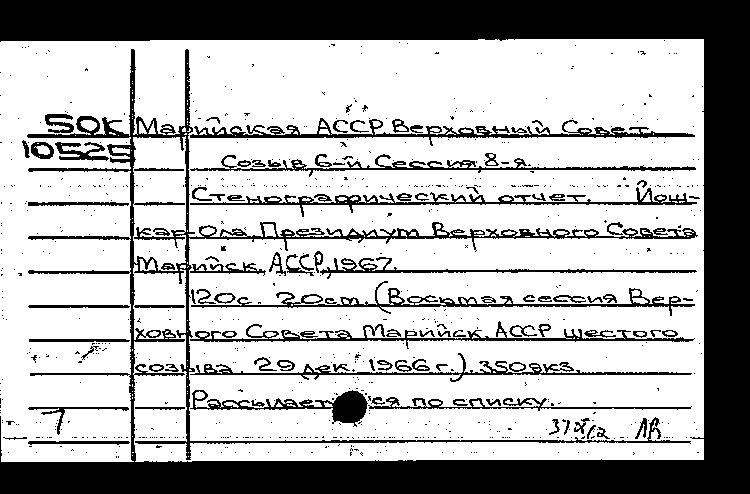 50К Марийская АССР. Верховный Совет.
10525 Созыв, 6-й. Сессия, 8-я
Стенографический отчет. Йош-
кар-Ола, Президиум Верховного Совета
Марийск. АССР, 1967.
120с. 20см. (Восьмая сессия Вер-
ховного Совета Марийск. АССР шестого
созыва. 29 дек. 1966 г.). 350экз.
Рассылается по списку.
7